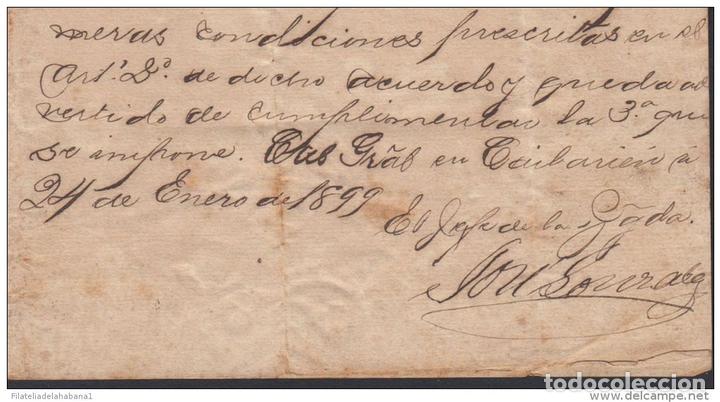 meras condiciones prescritas en el
Artº 2º de dicho acuerdo y queda ad
vertido de cumplimentar la 3.ª que
se impone. en Caibarién á
24 de Enero de 1899
El Jefe de la
José Gonzalez
Filateliadelahabana1
todocoleccion
www.delcampe.net